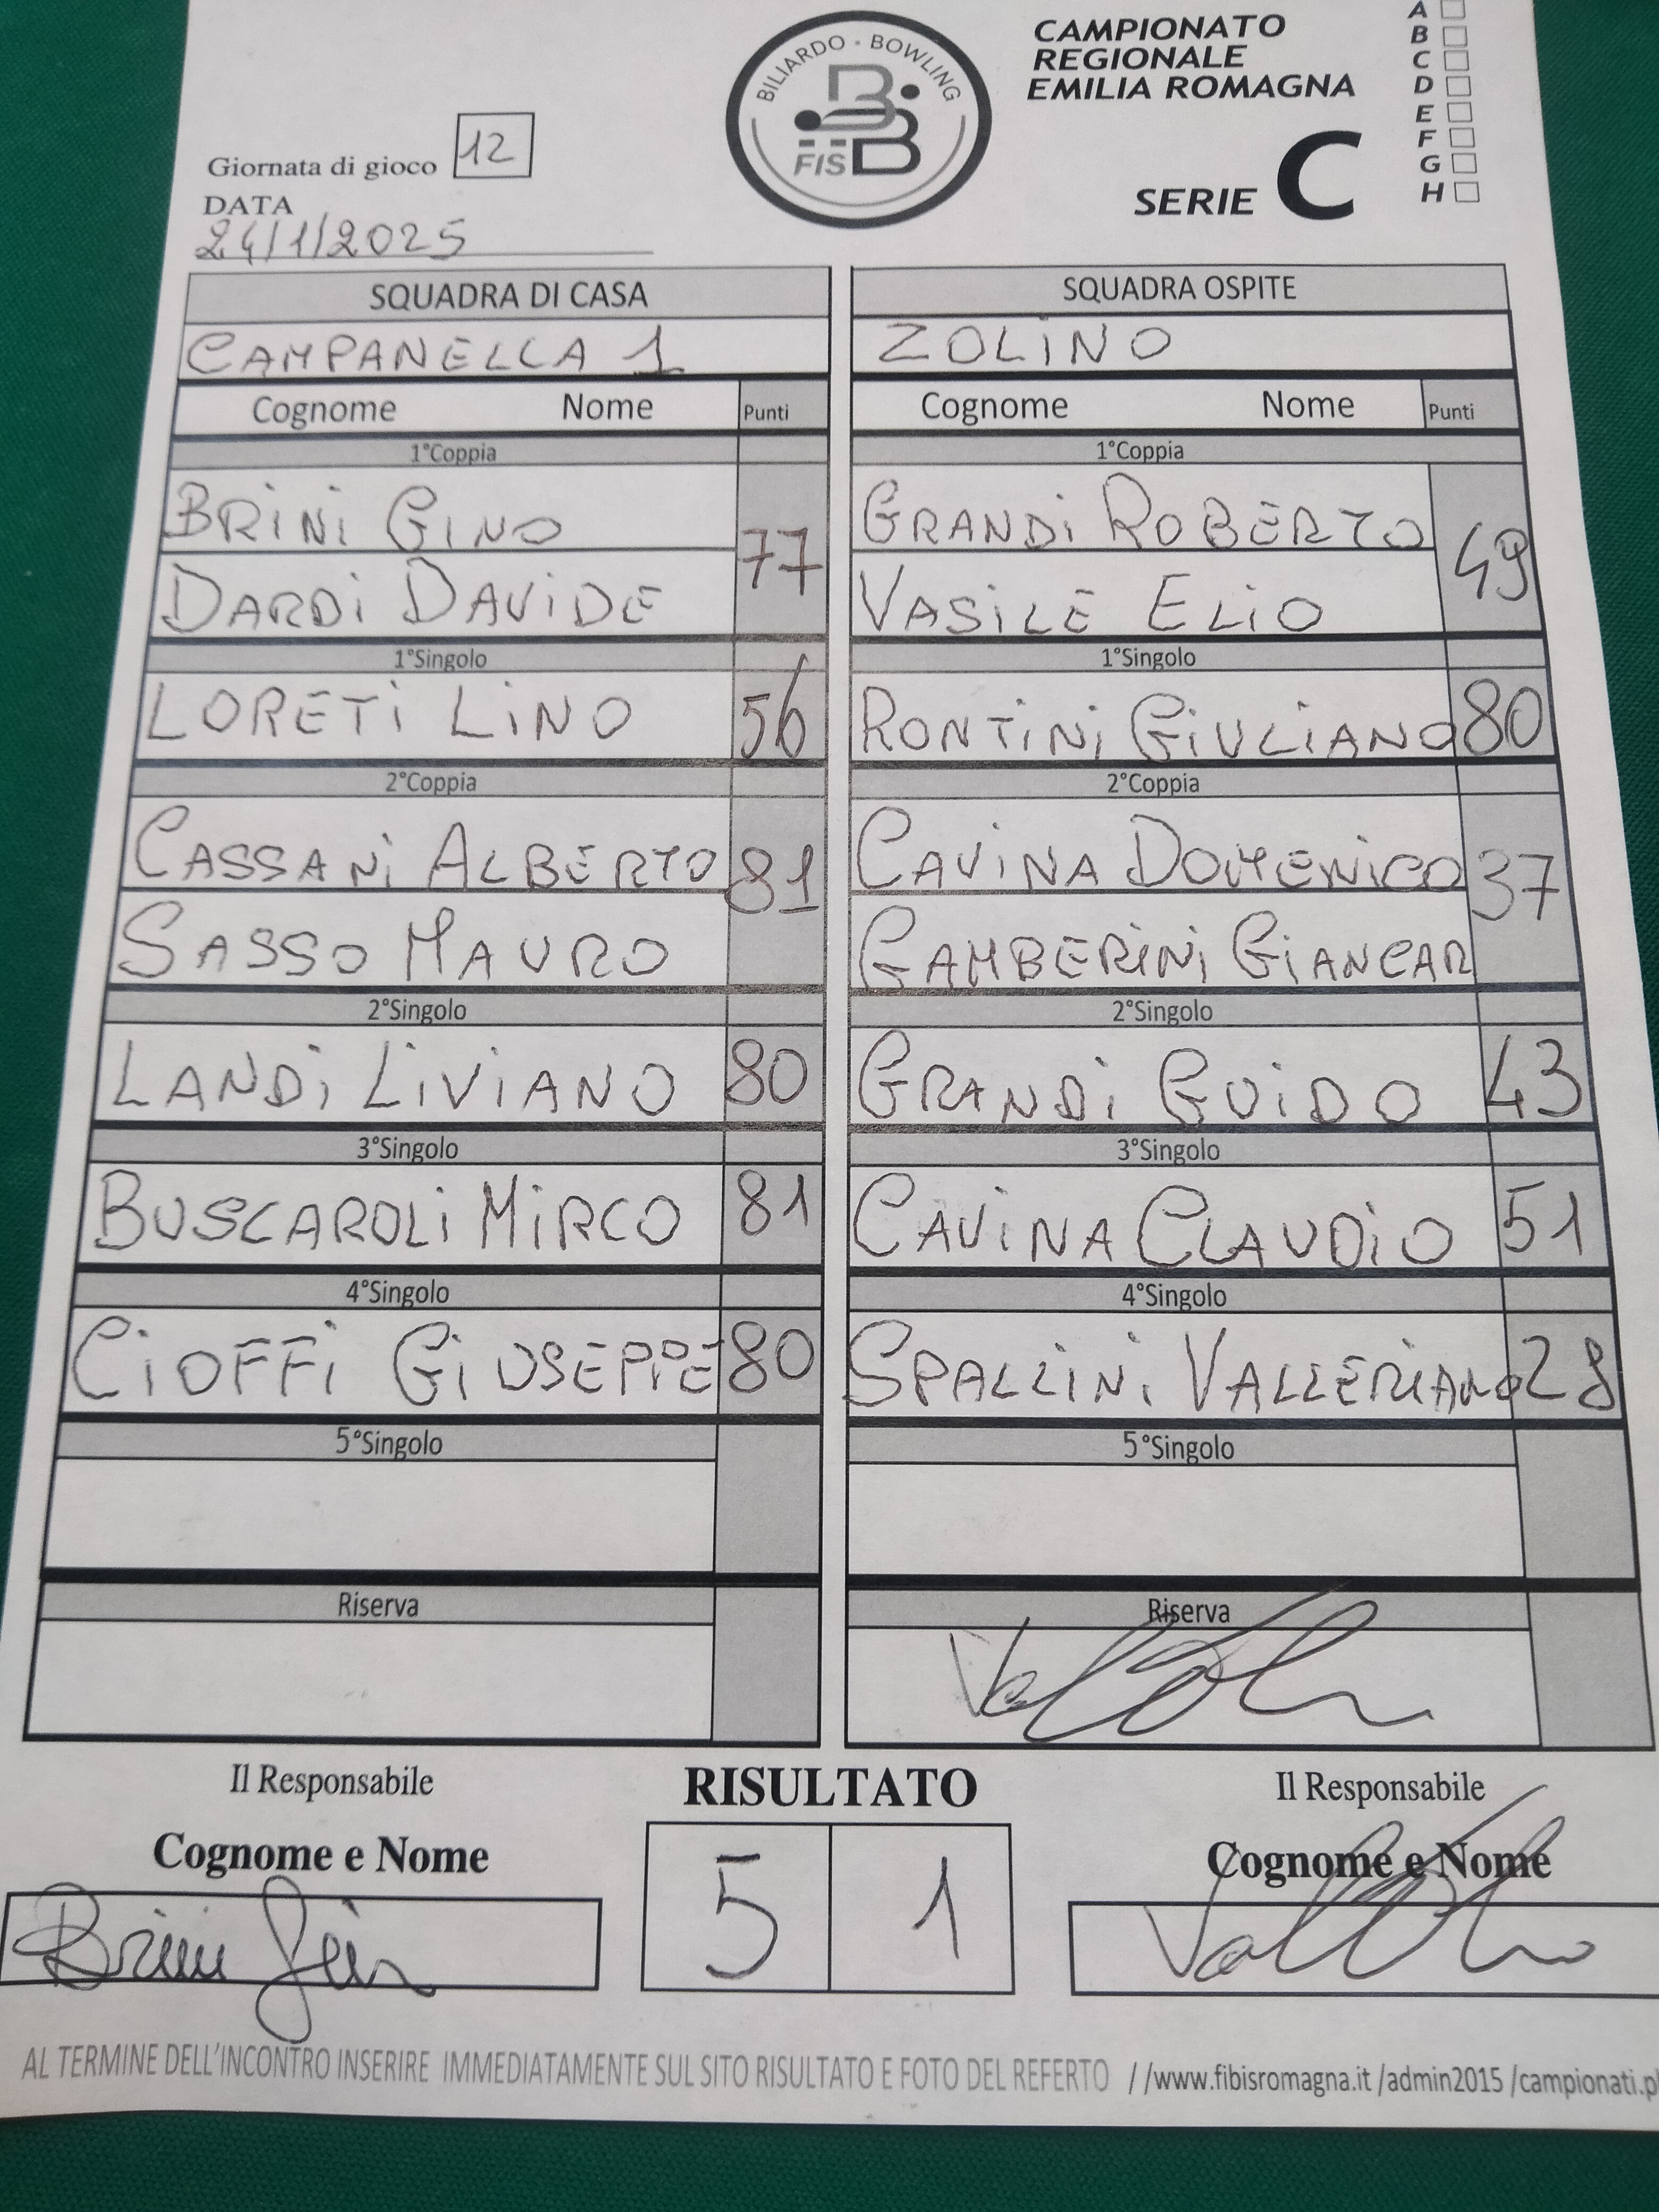 BILIARDO - BOWLING
FISBB
CAMPIONATO
REGIONALE
EMILIA ROMAGNA
SERIE C
A
B
C
D
E
F
G
H
Giornata di gioco 12
DATA
24/1/2025
SQUADRA DI CASA
CAMPANELLA 1
Cognome Nome Punti
1°Coppia
BRINI GINO
77
DARDI DAVIDE
1°Singolo
LORETI LINO 56
2°Coppia
CASSANI ALBERTO
81
SASSO MAURO
2°Singolo
LANDI LIVIANO 80
3°Singolo
BUSCAROLI MIRCO 81
4°Singolo
CIOFFI GIUSEPPE 80
5°Singolo
Riserva
SQUADRA OSPITE
ZOLINO
Cognome Nome Punti
1°Coppia
GRANDI ROBERTO
49
VASILE ELIO
1°Singolo
RONTINI GIULIANO 80
2°Coppia
CAVINA DOMENICO
37
GAMBERINI GIANCAR
2°Singolo
GRANDI GUIDO 43
3°Singolo
CAVINA CLAUDIO 51
4°Singolo
SPALLINI VALLERIANO 28
5°Singolo
Riserva
Il Responsabile
Cognome e Nome
Brini Gino
RISULTATO
5 1
Il Responsabile
Cognome e Nome
AL TERMINE DELL'INCONTRO INSERIRE IMMEDIATAMENTE SUL SITO RISULTATO E FOTO DEL REFERTO //www.fibisromagna.it /admin2015 /campionati.p